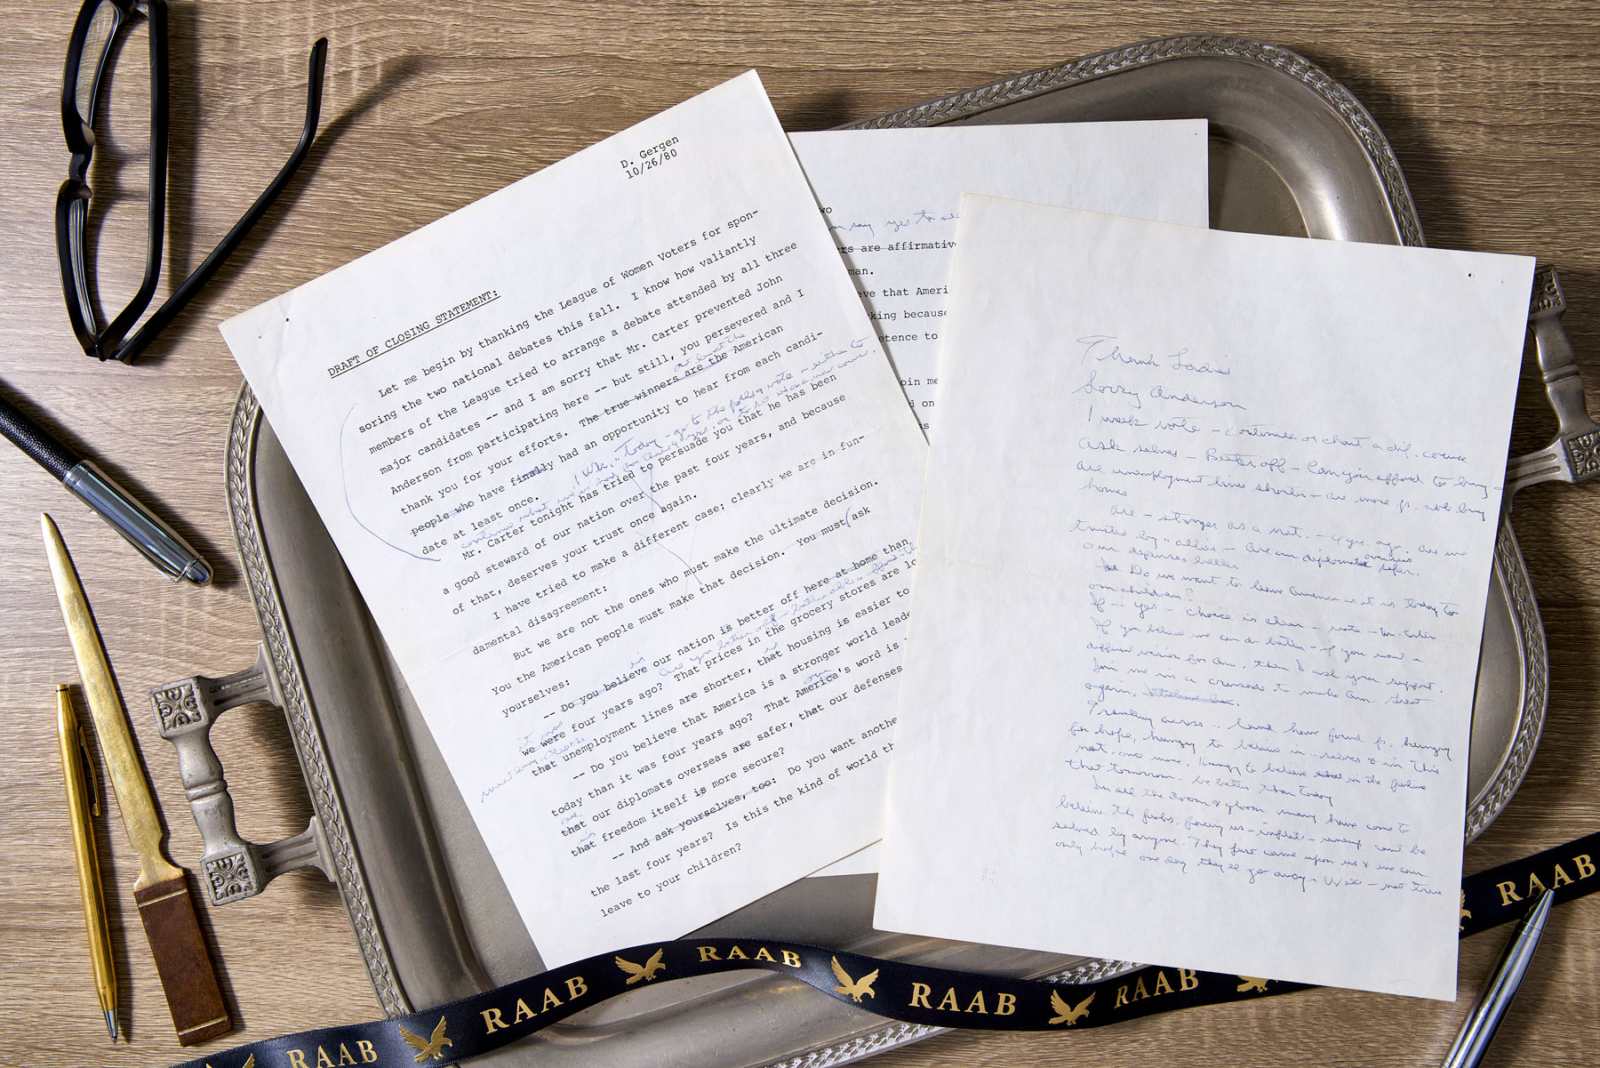 D. Gergen
10/26/80
DRAFT OF CLOSING STATEMENT:
Let me begin by thanking the League of Women Voters for spon-
soring the two national debates this fall. I know how valiantly
members of the League tried to arrange a debate attended by all three
major candidates -- and I am sorry that Mr. Carter prevented John
Anderson from participating here -- but still, you persevered and I
at least the
thank you for your efforts. The true winners are the American
people who have finally had an opportunity to hear from each candi-
date at least once. Today - go to the polls & vote - either to
Mr. Carter tonight has tried to persuade you that he has been
a good steward of our nation over the past four years, and because
of that, deserves your trust once again.
I have tried to make a different case; clearly we are in fun-
damental disagreement:
But we are not the ones who must make the ultimate decision.
You the American people must make that decision. You must ask
yourselves:
is
-- Do you believe our nation is better off here at home than
we were four years ago? That prices in the grocery stores are lo
that unemployment lines are shorter, that housing is easier to
-- Do you believe that America is a stronger world leade
our
today than it was four years ago? That America's word is
that our diplomats overseas are safer, that our defenses
that freedom itself is more secure?
-- And ask yourselves, too: Do you want anothe
the last four years? Is this the kind of world th
leave to your children?
wo
say yes to
rs are affirmativ
man.
eve that Ameri
king because
etence to
oin me
d on
Thank Ladies
Sorry Anderson
1 week vote - continue or chart a dif. course
Ask selves - Better off - Can you afford to buy -
are unemployment lines shorter - are more p. able buy
homes
Are - stronger as a nat. - 4 yrs. ago. Are we
trusted by allies - Are our diplomats safer.
our defenses better
Do we want to leave America as it is today to
our children?
If -- yes - choice is clear - vote - Mr. Carter
If you believe we can do better - if you want a
different vision for Am. then I ask your support.
Join me in a crusade to make Am. Great
again.
Traveling across .. land have found p. hungry
for hope, hungry to believe in .. selves & in this
nat. once more. Hungry to believe in the future
that tomorrow - be better than today
In all the doom & gloom many have come to
believe the probs. facing us - inflat. - unemp. can't be
solved by anyone. They just came upon us & we can
only hope one day they'll go away. Well - not true
RAAB
RAAB
RAAB
RAAB
RAAB
RAAB